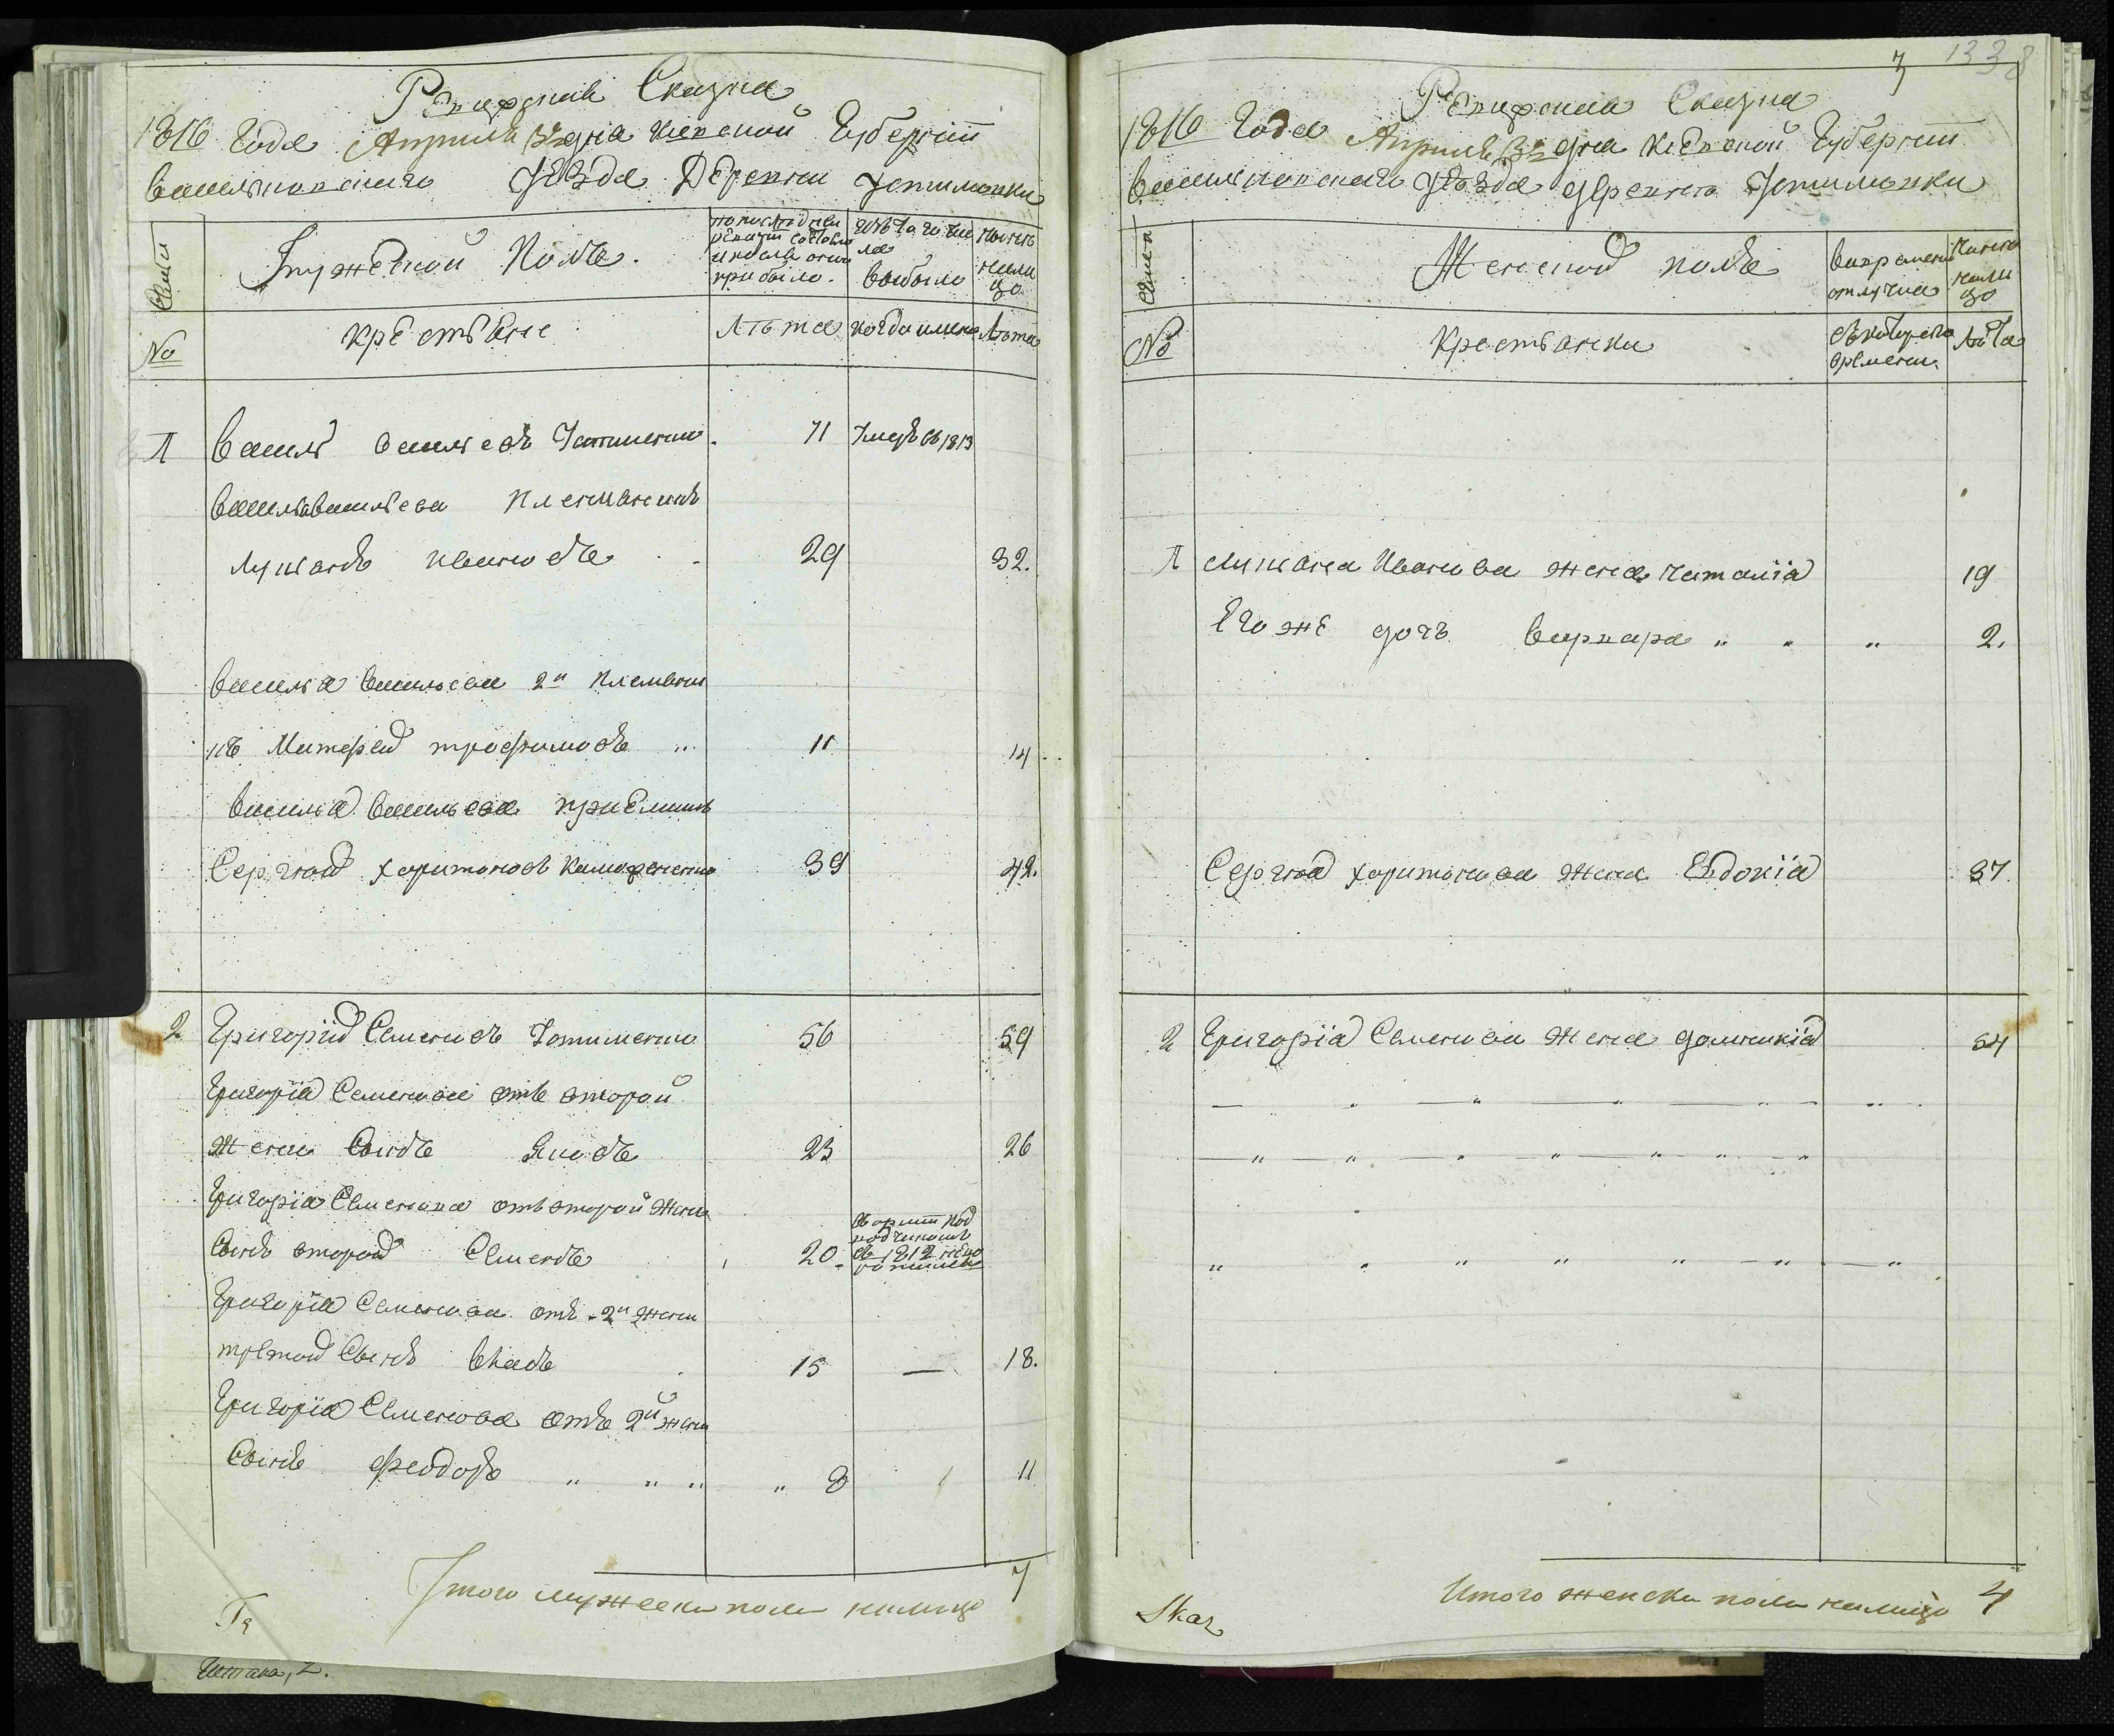 Ревизская Сказка
1816 Года Априля дня Киевской Губернии
Васильковского Уезда Деревни Устимовки
Семьи
Мужеской Полъ.
по последней
ревизии состояло
и после оной
прибыло.
изъ того числа
выбыло
ныне
на ли
цо
№
крестьяне
Лѣта
когда именно
Лѣта
1 Василь Васильевъ Устименко 71 Умеръ въ 1813
Василя Васильева племянникъ
Лукьянъ Ивановъ 29 32.
Василя Васильева 2й племян
икъ Матфей трофимовъ 11 14
Василя Васильева приемишъ
Сергей Харитоновъ 39 42.
2 Григорий Семеновъ Устименко 56 59
Григорія Семенова отъ второй
жены Сынъ Яковъ 23 26
Григорія Семенова отъ второй жены
Сынъ второй Семенъ 20 въ 1812
Григорія Семенова отъ 2й жены
третой Сынъ Власъ 15 — 18.
Григорія Семенова отъ 2й жены
Сынъ Феодоръ 8 11
Итого мужеска пола налицо 7
1338
Ревизская Сказка
1816 Года Априля дня Киевской Губернии
Васильковского уезда деревни Устимовки
Семьи
Женской полъ
во временной
отлучке
ныне
на ли
цо
№
Крестьянки
съ которого
времени
Лѣта
1 Лукьяна Иванова жена Наталія 19
Его же дочь Варвара 2.
Сергея Харитонова жена Евдокія 37.
2 Григорія Семенова жена Домникія 54
Итого женска пола налицо 4
Skaz